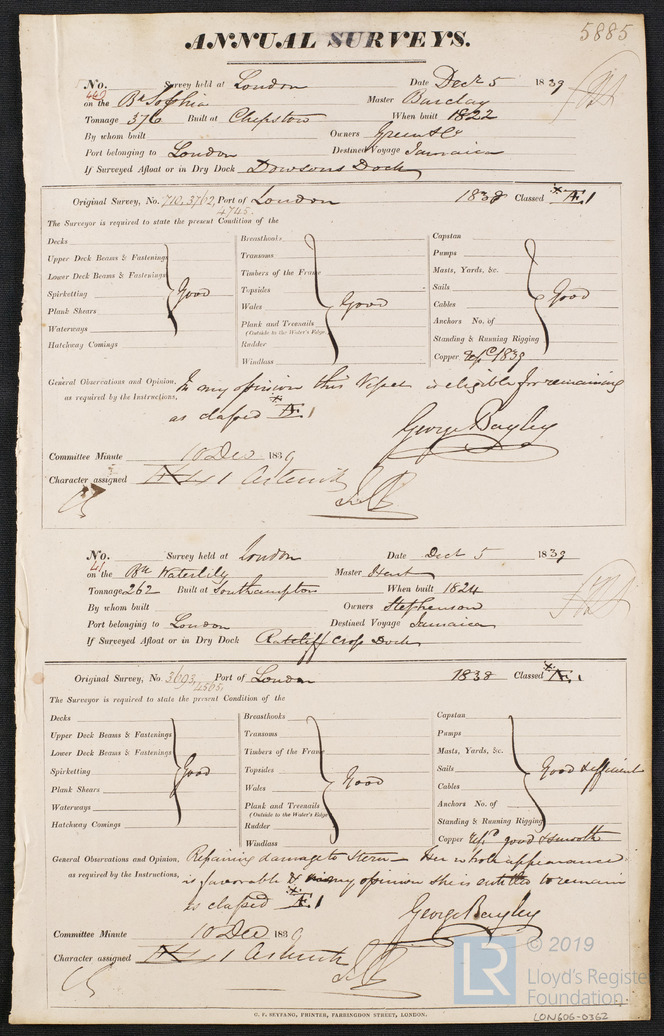 5885
ANNUAL SURVEYS.
No. 462 Survey held at London Date Decr 5 1839
on the Bk Sophia Master Barclay
Tonnage 376 Built at Chepstow When built 1822
By whom built Owners Green & Co
Port belonging to London Destined Voyage Jamaica
If Surveyed Afloat or in Dry Dock Dowsons Dock
Original Survey, No. 710, 3762, 4745. Port of London 1838 Classed Æ 1
The Surveyor is required to state the present Condition of the
Decks
Upper Deck Beams & Fastenings
Lower Deck Beams & Fastenings
Spirketting Good
Plank Shears
Waterways
Hatchway Comings
Breasthooks
Transoms
Timbers of the Frame
Topsides
Wales Good
Plank and Treenails
(Outside to the Water's Edge)
Rudder
Windlass
Capstan
Pumps
Masts, Yards, &c.
Sails Good
Cables
Anchors No. of
Standing & Running Rigging
Copper repd 1839
General Observations and Opinion, In my opinion this Vessel is eligible for remaining
as required by the Instructions, as classed Æ 1
George Bayley
Committee Minute 10 Dec 1839
Character assigned 1 Asterisk
No. 41 Survey held at London Date Decr 5 1839
on the Bk Waterlily Master Hunt
Tonnage 262 Built at Southampton When built 1824
By whom built Owners Stephenson
Port belonging to London Destined Voyage Jamaica
If Surveyed Afloat or in Dry Dock Ratcliff Cross Dock
Original Survey, No. 3693, 4565. Port of London 1838 Classed Æ 1
The Surveyor is required to state the present Condition of the
Decks
Upper Deck Beams & Fastenings
Lower Deck Beams & Fastenings
Spirketting Good
Plank Shears
Waterways
Hatchway Comings
Breasthooks
Transoms
Timbers of the Frame
Topsides
Wales Good
Plank and Treenails
(Outside to the Water's Edge)
Rudder
Windlass
Capstan
Pumps
Masts, Yards, &c.
Sails Good & efficient
Cables
Anchors No. of
Standing & Running Rigging
Copper repd good & smooth
General Observations and Opinion, Repairing damage to Stern – Her whole appearance
as required by the Instructions, is favorable & in my opinion she is entitled to remain
as classed Æ 1
George Bayley
Committee Minute 10 Dec 1839
Character assigned 1 Asterisk
G. F. SEYFANG, PRINTER, FARRINGDON STREET, LONDON.
LR © 2019
Lloyd's Register
Foundation
LON606-0362